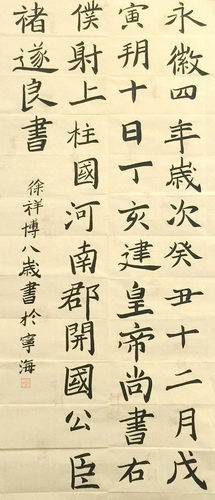 永徽四年歲次癸丑十二月戊
寅朔十日丁亥建皇帝尚書右
僕射上柱國河南郡開國公臣
褚遂良書
徐祥博八歲書於寧海